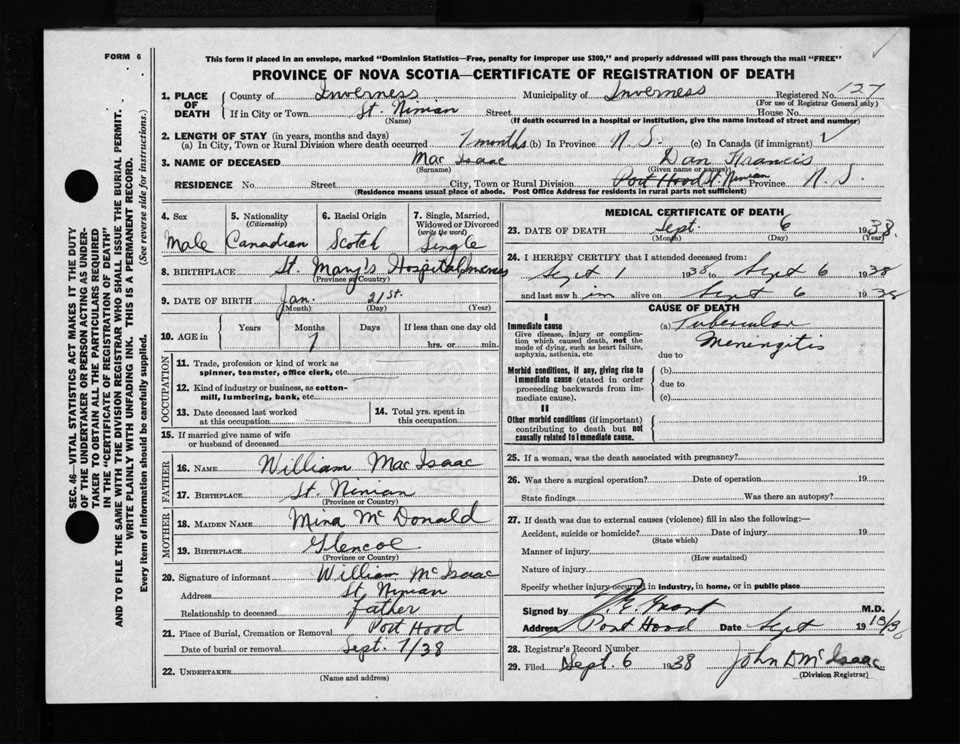 FORM 6
This form if placed in an envelope, marked "Dominion Statistics—Free, penalty for improper use $300," and properly addressed will pass through the mail "FREE"
PROVINCE OF NOVA SCOTIA—CERTIFICATE OF REGISTRATION OF DEATH
SEC. 46—VITAL STATISTICS ACT MAKES IT THE DUTY
OF THE UNDERTAKER OR PERSON ACTING AS UNDER-
TAKER TO OBTAIN ALL THE PARTICULARS REQUIRED
IN THE "CERTIFICATE OF REGISTRATION OF DEATH"
AND TO FILE THE SAME WITH THE DIVISION REGISTRAR WHO SHALL ISSUE THE BURIAL PERMIT.
WRITE PLAINLY WITH UNFADING INK. THIS IS A PERMANENT RECORD.
Every item of information should be carefully supplied. (See reverse side for instructions.)
1. PLACE OF DEATH
County of Inverness Municipality of Inverness Registered No. 127
(For use of Registrar General only)
If in City or Town St. Ninian Street House No.
(Name) (If death occurred in a hospital or institution, give the name instead of street and number)
2. LENGTH OF STAY (in years, months and days)
(a) In City, Town or Rural Division where death occurred 7 months (b) In Province N. S. (c) In Canada (if immigrant)
3. NAME OF DECEASED Mac Isaac Dan Francis
(Surname) (Given name or names)
RESIDENCE No. Street City, Town or Rural Division Port Hood St. Ninian Province N. S.
(Residence means usual place of abode. Post Office Address for residents in rural parts not sufficient)
4. Sex
Male
5. Nationality
(Citizenship)
Canadian
6. Racial Origin
Scotch
7. Single, Married,
Widowed or Divorced
(write the word)
Single
8. BIRTHPLACE St. Mary's Hospital Inverness
(Province or Country)
9. DATE OF BIRTH Jan. 21st.
(Month) (Day) (Year)
10. AGE in Years Months Days If less than one day old
7 hrs. or min.
OCCUPATION
11. Trade, profession or kind of work as
spinner, teamster, office clerk, etc.
12. Kind of industry or business, as cotton-
mill, lumbering, bank, etc.
13. Date deceased last worked
at this occupation
14. Total yrs. spent in
this occupation
15. If married give name of wife
or husband of deceased
FATHER
16. NAME William Mac Isaac
17. BIRTHPLACE St. Ninian
(Province or Country)
MOTHER
18. MAIDEN NAME Mina McDonald
19. BIRTHPLACE Glencoe
(Province or Country)
20. Signature of informant William McIsaac
Address St. Ninian
Relationship to deceased Father
21. Place of Burial, Cremation or Removal Port Hood
Date of burial or removal Sept. 7/38
22. UNDERTAKER
(Name and address)
MEDICAL CERTIFICATE OF DEATH
23. DATE OF DEATH Sept. 6 1938
(Month) (Day) (Year)
24. I HEREBY CERTIFY that I attended deceased from:
Sept 1 1938 to Sept 6 1938
and last saw him alive on Sept 6 1938
CAUSE OF DEATH
I
Immediate cause
Give disease, injury or complica-
tion which caused death, not the
mode of dying, such as heart failure,
asphyxia, asthenia, etc
(a) Tubercular
Meningitis
due to
Morbid conditions, if any, giving rise to
immediate cause (stated in order
proceeding backwards from im-
mediate cause).
(b)
due to
(c)
II
Other morbid conditions (if important)
contributing to death but not
causally related to immediate cause.
25. If a woman, was the death associated with pregnancy?
26. Was there a surgical operation? Date of operation 19
State findings Was there an autopsy?
27. If death was due to external causes (violence) fill in also the following:—
Accident, suicide or homicide? Date of injury 19
(State which)
Manner of injury
(How sustained)
Nature of injury
Specify whether injury occurred in industry, in home, or in public place
Signed by Grant M.D.
Address Port Hood Date Sept 19
28. Registrar's Record Number
29. Filed Sept. 6 1938 John D McIsaac
(Division Registrar)